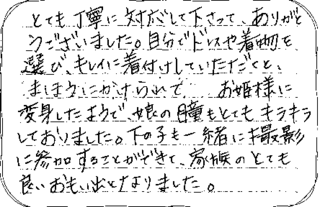 とても丁寧に対応して下さって、ありがと
うございました。自分でドレスや着物を
選び、キレイに着付けしていただくと、
お姫様に
変身したようで、娘の瞳もとてもキラキラ
しておりました。下の子も一緒に撮影
に参加することができて、家族のとても
良いおもい出となりました。